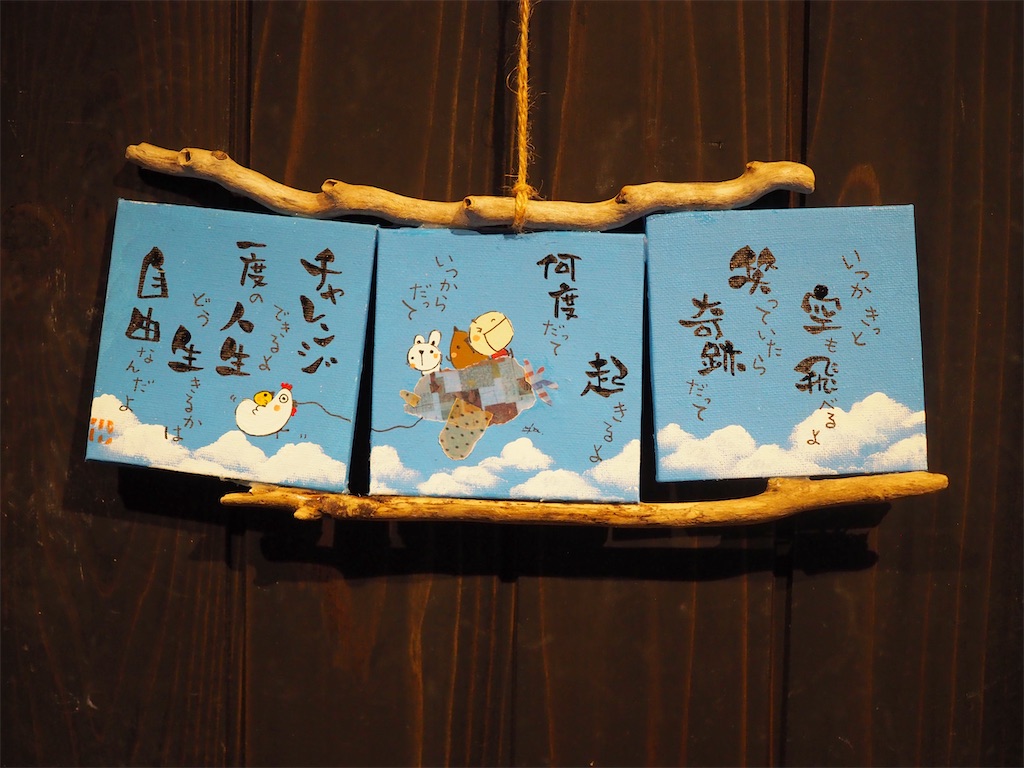 いつかきっと
空も飛べるよ
笑っていたら
奇跡だって
起きるよ
何度だって
いつから
だって
チャレンジ
できるよ
一度の人生
どう生きるかは
自由なんだよ